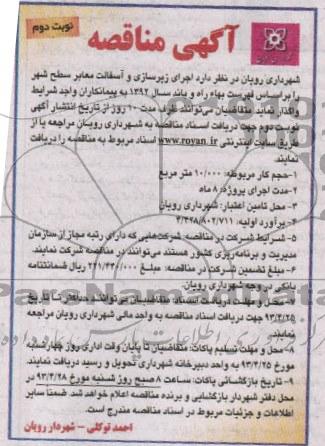 نوبت دوم
آگهی مناقصه
شهرداری رویان در نظر دارد اجرای زیرسازی و آسفالت معابر سطح شهر
را براساس فهرست بهاء راه و باند سال ۱۳۹۲ به پیمانکاران واجد شرایط
واگذار نماید. متقاضیان می‌توانند ظرف مدت ۱۰ روز از تاریخ انتشار آگهی
نوبت دوم جهت دریافت اسناد مناقصه به شهرداری رویان مراجعه یا از
طریق سایت اینترنتی www.royan.ir اسناد مربوط به مناقصه را دریافت
نمایند.
۱-حجم کار مربوطه: ۱۰/۰۰۰ متر مربع
۲-مدت اجرای پروژه: ۸ ماه
۳- محل تامین اعتبار: شهرداری رویان
۴- برآورد اولیه: ۴/۴۲۸/۸۰۲/۷۱۱
۵- شرایط شرکت در مناقصه: شرکت‌هایی که دارای رتبه مجاز از سازمان
مدیریت و برنامه‌ریزی کشور هستند می‌توانند در مناقصه شرکت نمایند.
۶- مبلغ تضمین شرکت در مناقصه: مبلغ ۲۲۱/۴۴۰/۰۰۰ ریال ضمانتنامه
بانکی در وجه شهرداری رویان.
۷- محل و مهلت دریافت اسناد: متقاضیان می‌توانند حداکثر تا تاریخ
۹۳/۴/۲۵ جهت دریافت اسناد مناقصه به واحد مالی شهرداری رویان مراجعه
نمایند.
۸- محل و مهلت تسلیم پاکات: متقاضیان تا پایان وقت اداری روز چهارشنبه
مورخ ۹۳/۴/۲۵ به واحد دبیرخانه شهرداری تحویل و رسید دریافت نمایند.
۹- تاریخ بازگشائی پاکات: ساعت ۸ صبح روز شنبه مورخ ۹۳/۴/۲۸ در
محل دفتر شهردار بازگشایی و برنده مناقصه اعلام خواهد شد. ضمنا سایر
اطلاعات و جزئیات مربوط در اسناد مناقصه مندرج است.
احمد توکلی - شهردار رویان